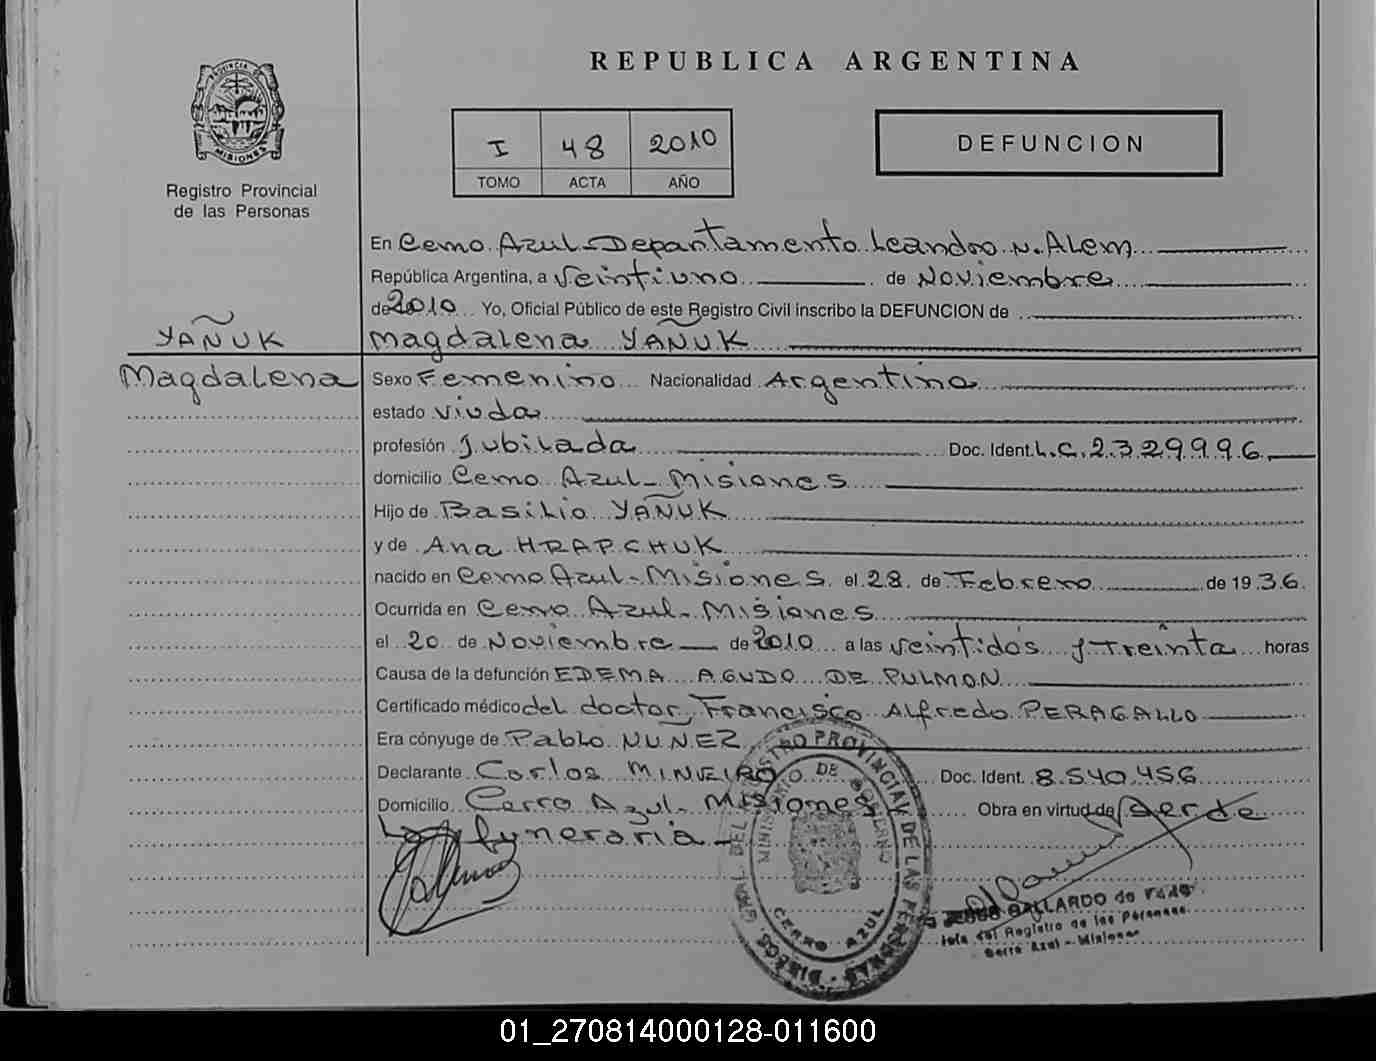 REPUBLICA ARGENTINA
PROVINCIA DE
MISIONES
Registro Provincial
de las Personas
I 48 2010
TOMO ACTA AÑO
DEFUNCION
En Cerro Azul-Departamento Leandro N. Alem
República Argentina, a veintiuno de Noviembre
de 2010 Yo, Oficial Público de este Registro Civil inscribo la DEFUNCION de
YAÑUK
Magdalena
Magdalena YAÑUK
Sexo Femenino Nacionalidad Argentina
estado viuda
profesión Jubilada Doc. Ident. L.C. 2.329.996
domicilio Cerro Azul-Misiones
Hijo de Basilio YAÑUK
y de Ana HRAPCHUK
nacido en Cerro Azul-Misiones el 28 de Febrero de 1936.
Ocurrida en Cerro Azul-Misiones
el 20 de Noviembre de 2010 a las veintidós y treinta horas
Causa de la defunción EDEMA AGUDO DE PULMON
Certificado médico del doctor Francisco Alfredo PERAGALLO
Era cónyuge de Pablo NUÑEZ
Declarante Carlos MINEIRO Doc. Ident. 8.540.456
Domicilio Cerro Azul-Misiones Obra en virtud de ser de
la funeraria-
REGISTRO PROVINCIAL DE LAS PERSONAS
MINISTERIO DE GOBIERNO
CERRO AZUL
GALLARDO de
Jefe del Registro de las Personas
Cerro Azul - Misiones
01_270814000128-011600